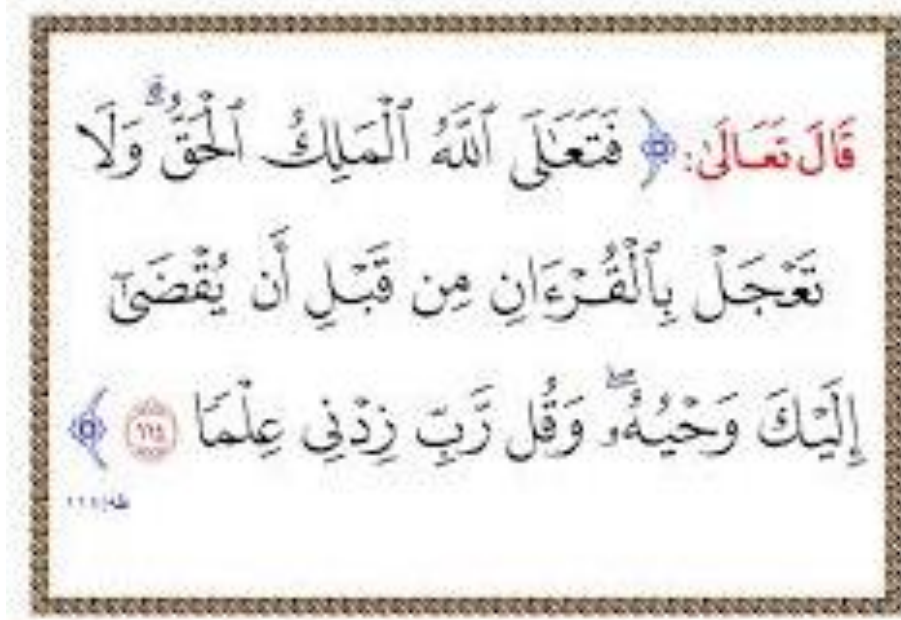 قَالَ تَعَالَىٰ: ﴿ فَتَعَٰلَى ٱللَّهُ ٱلْمَلِكُ ٱلْحَقُّ ۗ وَلَا
تَعْجَلْ بِٱلْقُرْءَانِ مِن قَبْلِ أَن يُقْضَىٰٓ
إِلَيْكَ وَحْيُهُۥ ۖ وَقُل رَّبِّ زِدْنِى عِلْمًا ١١٤ ﴾
طه/١١٤